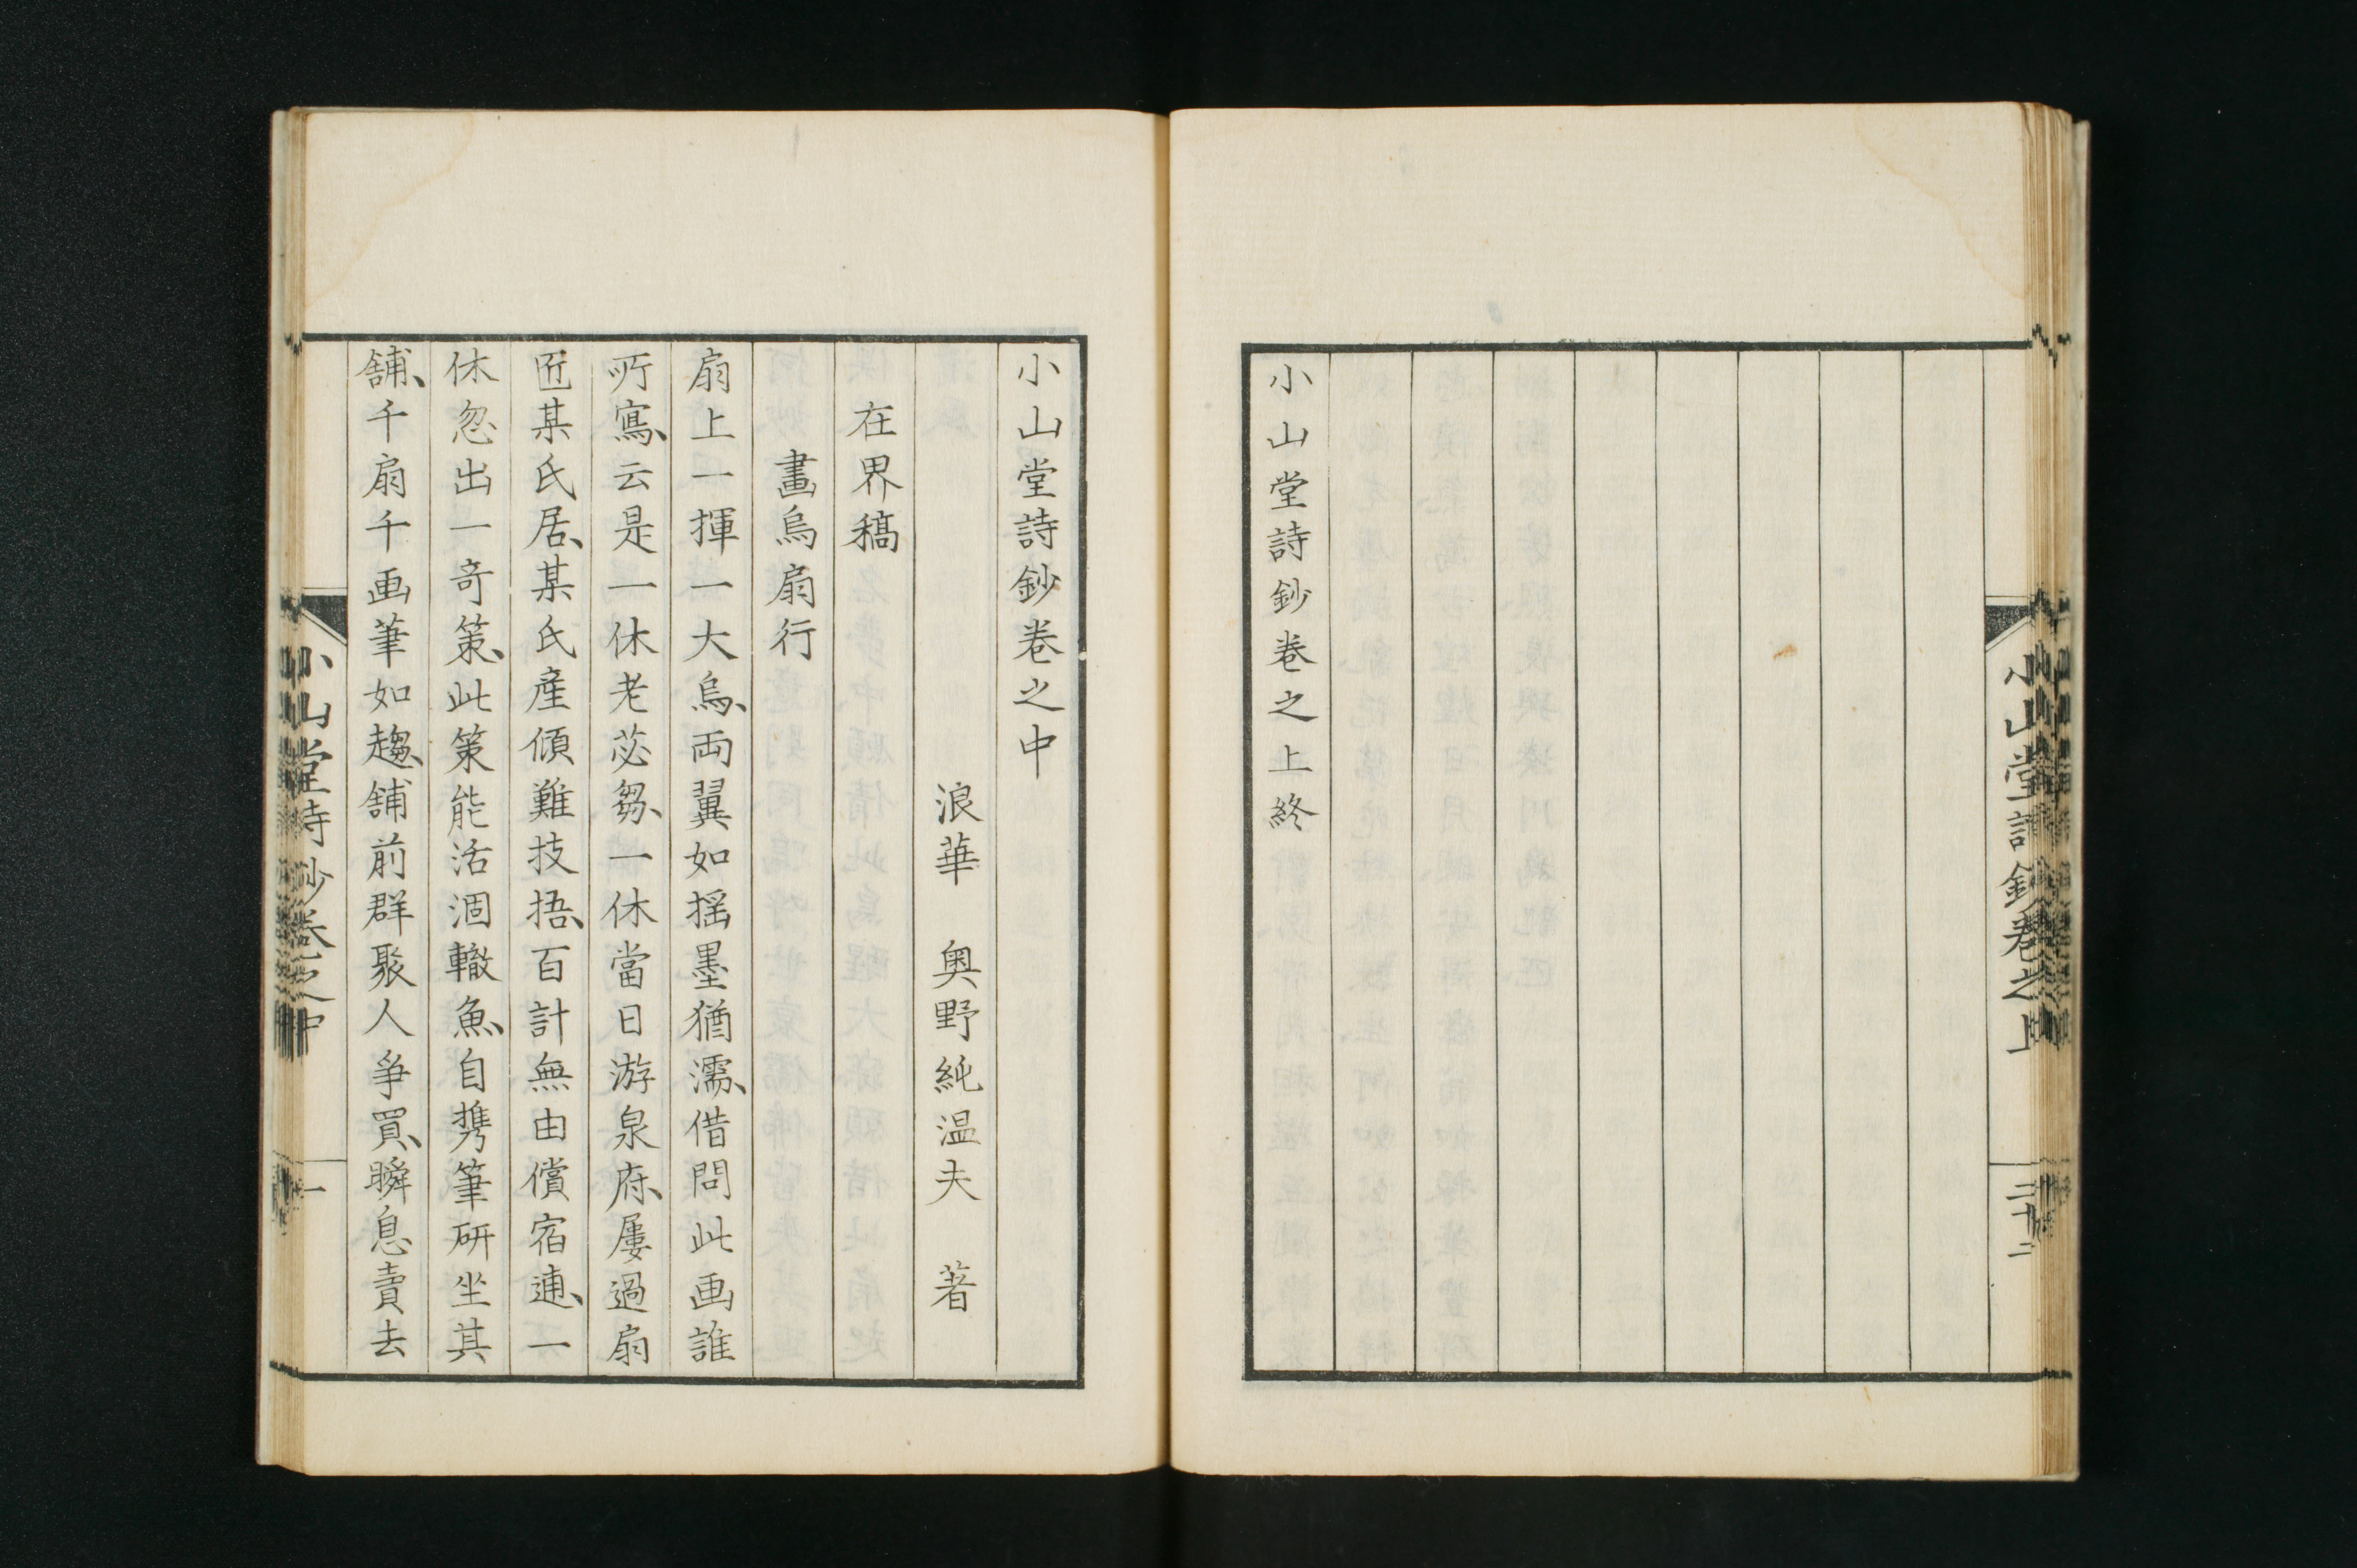 小山堂詩鈔卷之上
二十二
小山堂詩鈔卷之上終
小山堂詩鈔卷之中
浪華　奥野純温夫　著
在界稿
畫烏扇行
扇上一揮一大烏、両翼如揺墨猶濡、借問此画誰
所寫、云是一休老苾蒭、一休當日游泉府、屢過扇
匠某氏居、某氏産傾難技捂、百計無由償宿逋、一
休忽出一奇策、此策能活涸轍魚、自携筆研坐其
舗、千扇千画筆如趨、舗前群聚人爭買、瞬息賣去
小山堂詩鈔卷之中
一